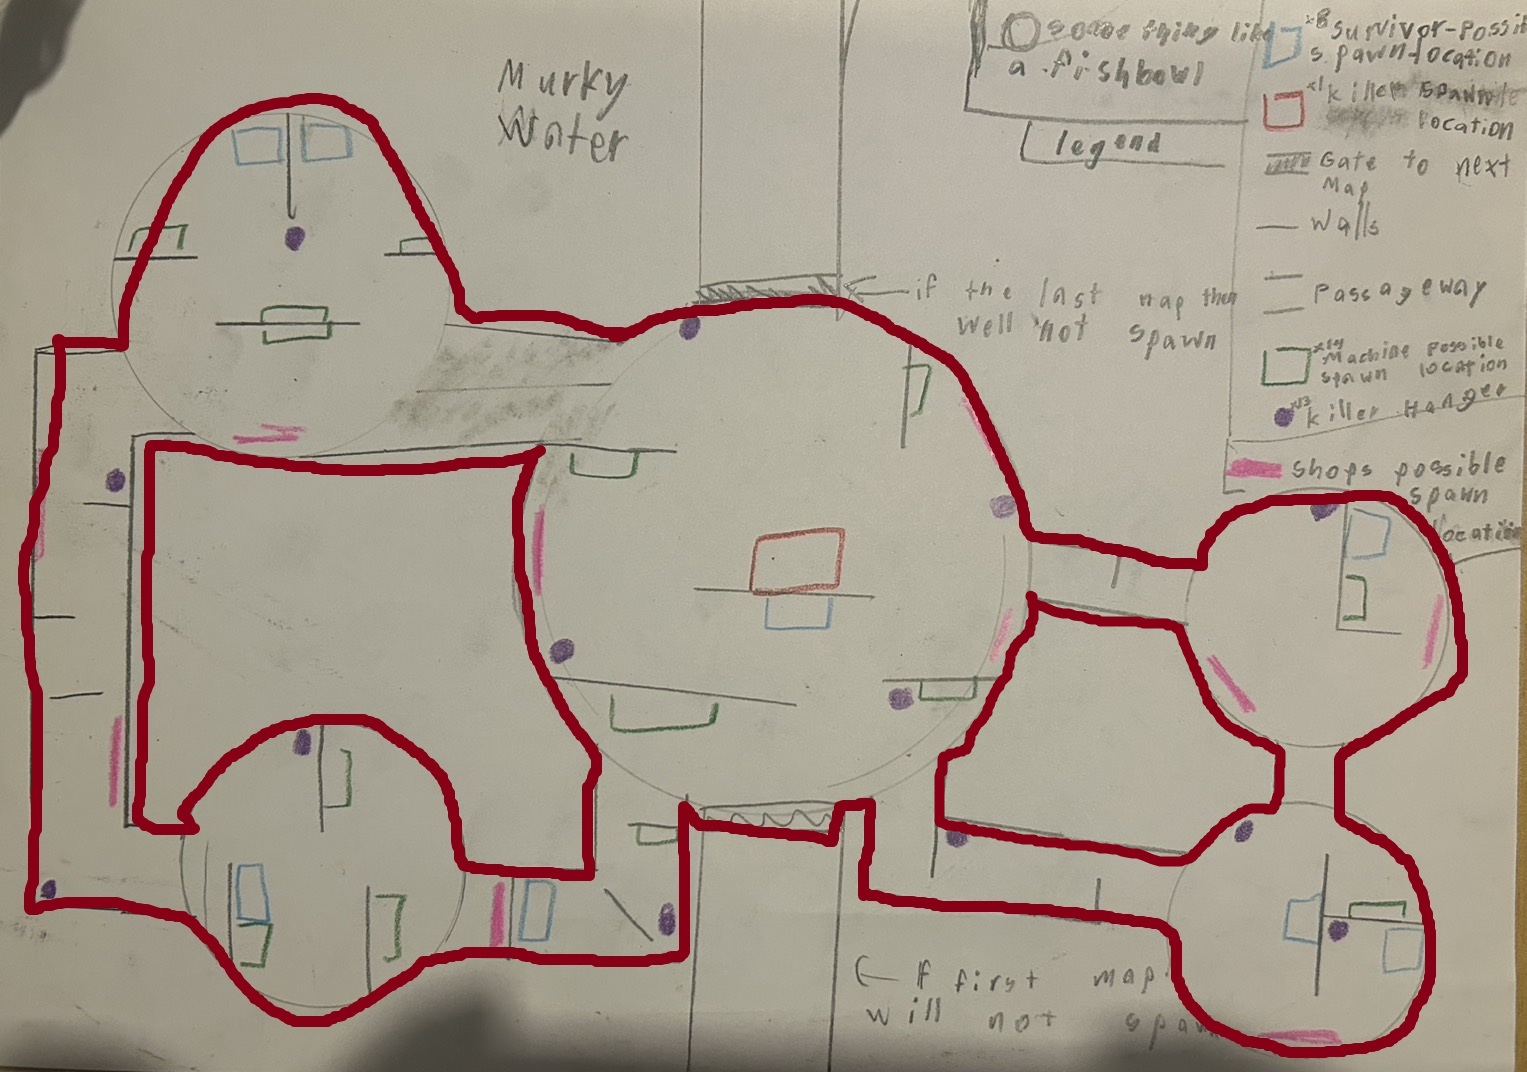 Murky
Water
some thing like
a fishbowl
legend
x8 survivor-possi
spawn-location
x1 killer spawn
location
Gate to next
Map
Walls
Passageway
x14
Machine possible
spawn location
x13 killer Hanger
shops possible
spawn
location
if the last map then
Well not spawn
If first map
will not spaw